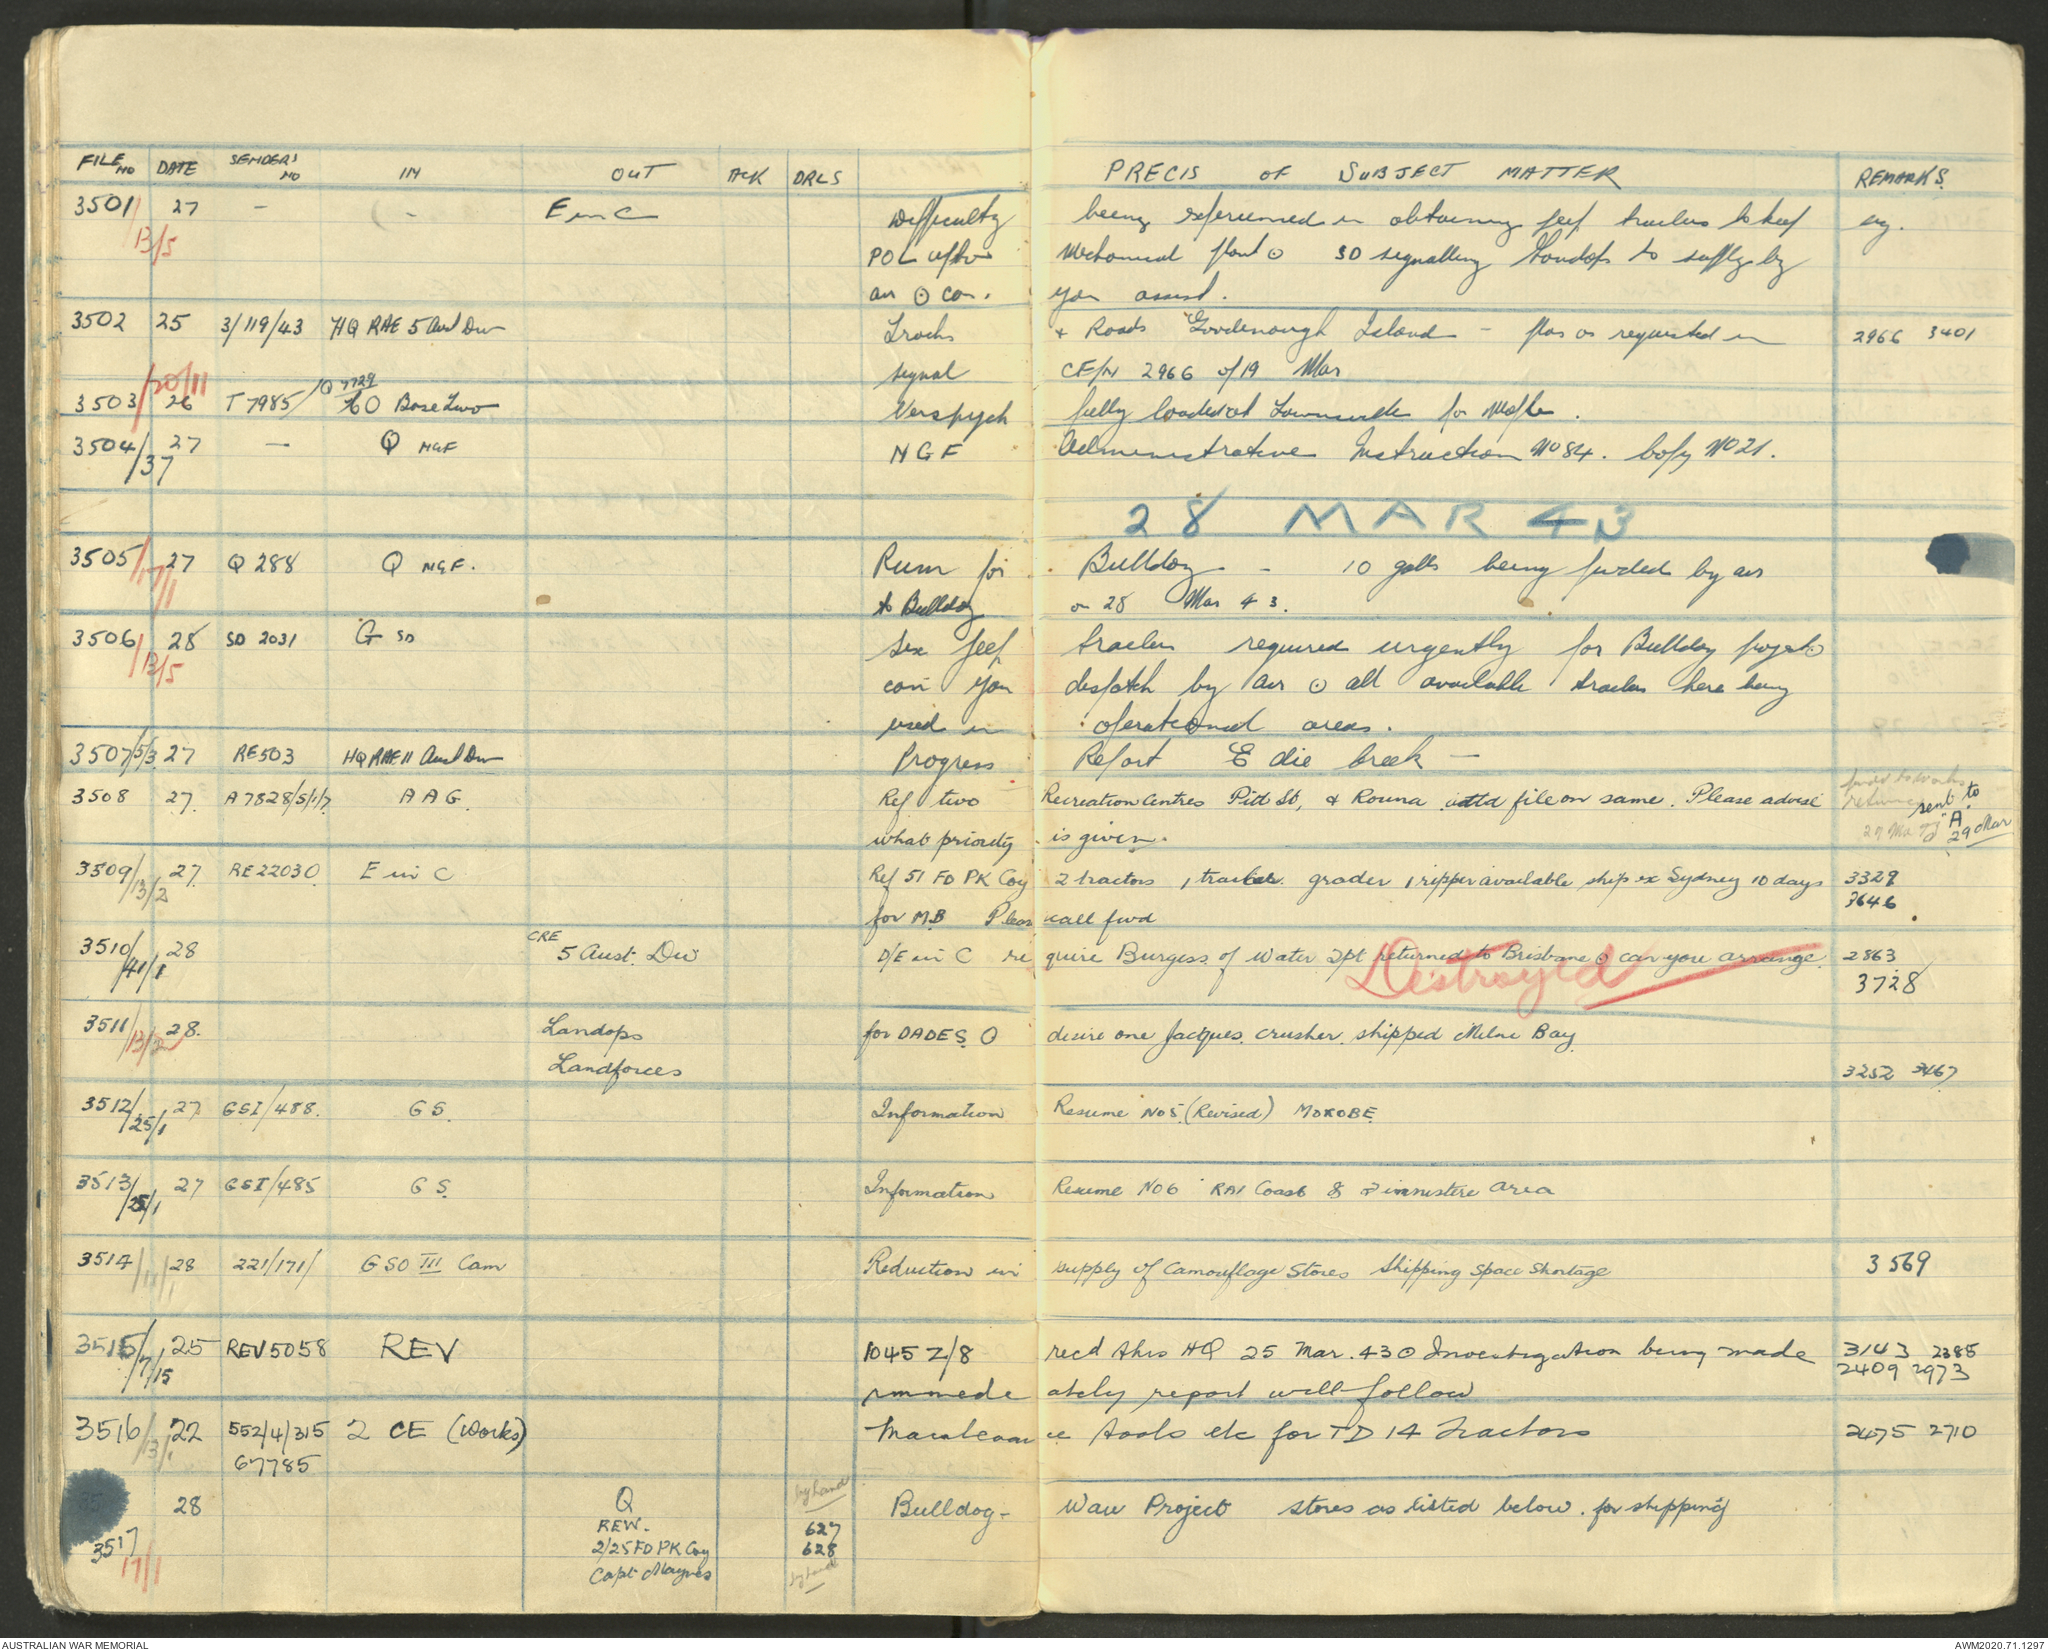 FILE NO DATE SENDERS NO IN OUT ACK DRLS PRECIS OF SUBJECT MATTER REMARKS
3501/13/5 27 - - E in C Difficulty being experienced in obtaining jeep trailers to keep eng.
POL up to mechanical plant ⊙ SD signalling Landops to supply by
air ⊙ can you assist.
3502 25 3/119/43 HQ RAE 5 Aust Div Tracks & Roads Goodenough Island - plan as requested in 2966 3401
/20/11 signal CE/N 2966 of 19 Mar
3503 26 T7985/Q7729 Base Two Verspyck fully loaded at Townsville for
3504/37 27 — Q NGF NGF Administrative Instruction No 84. Copy No 21.
28 MAR 43
3505/17/1 27 Q 288 Q NGF. Rum for Bulldog - 10 galls being fwded by air
to Bulldog on 28 Mar 43.
3506/13/5 28 SD 2031 G SD Six jeep trailers required urgently for Bulldog project ⊙
can you despatch by air ⊙ all available trailers here being
used in operational areas.
3507/5/3 27 RE503 HQ RAE 11 Aust Div Progress Report Edie Creek —
3508 27. A7828/5/1/7 AAG. Ref two Recreation Centres Pitt St, & Rouna attd file on same. Please advise sent to
what priority is given. "A" 29 Mar
3509/13/2 27. RE22030 E in C Ref 51 FD PK Coy 2 tractors 1 grader 1 ripper available ship ex Sydney 10 days 3329
for MB Please call fwd 3646
3510/41/1 28 CRE 5 Aust. Div D/E in C require Burgess of Water Tpt returned to Brisbane ⊙ can you arrange. 2863
Destroyed 3728
3511/13/2 28. Landops for DADES ⊙ desire one Jacques crusher shipped Milne Bay.
Landforces 3252 3467
3512/25/1 27 GSI/488. GS. Information Resume No 5 (Revised) MOROBE
3513/25/1 27 GSI/485 GS. Information Resume No 6 RAI Coast & Finnistere area
3514/11/1 28 221/171/ GSO III Cam Reduction in supply of Camouflage Stores Shipping Space Shortage 3569
3515/7/15 25 REV5058 REV 1045 Z/8 recd this HQ 25 Mar. 43 ⊙ Investigation being made 3143 2385
immediately report will follow 2409 2973
3516/13/1 22 552/4/315 2 CE (Works) Maintenance tools etc for TD 14 Tractors 2475 2710
67785
28 Q by hand Bulldog - Wau Project stores as listed below. for shipping
REW. 627
3517 2/25 FD PK Coy 628
17/1 Capt Maynes by hand
AUSTRALIAN WAR MEMORIAL AWM2020.71.1297